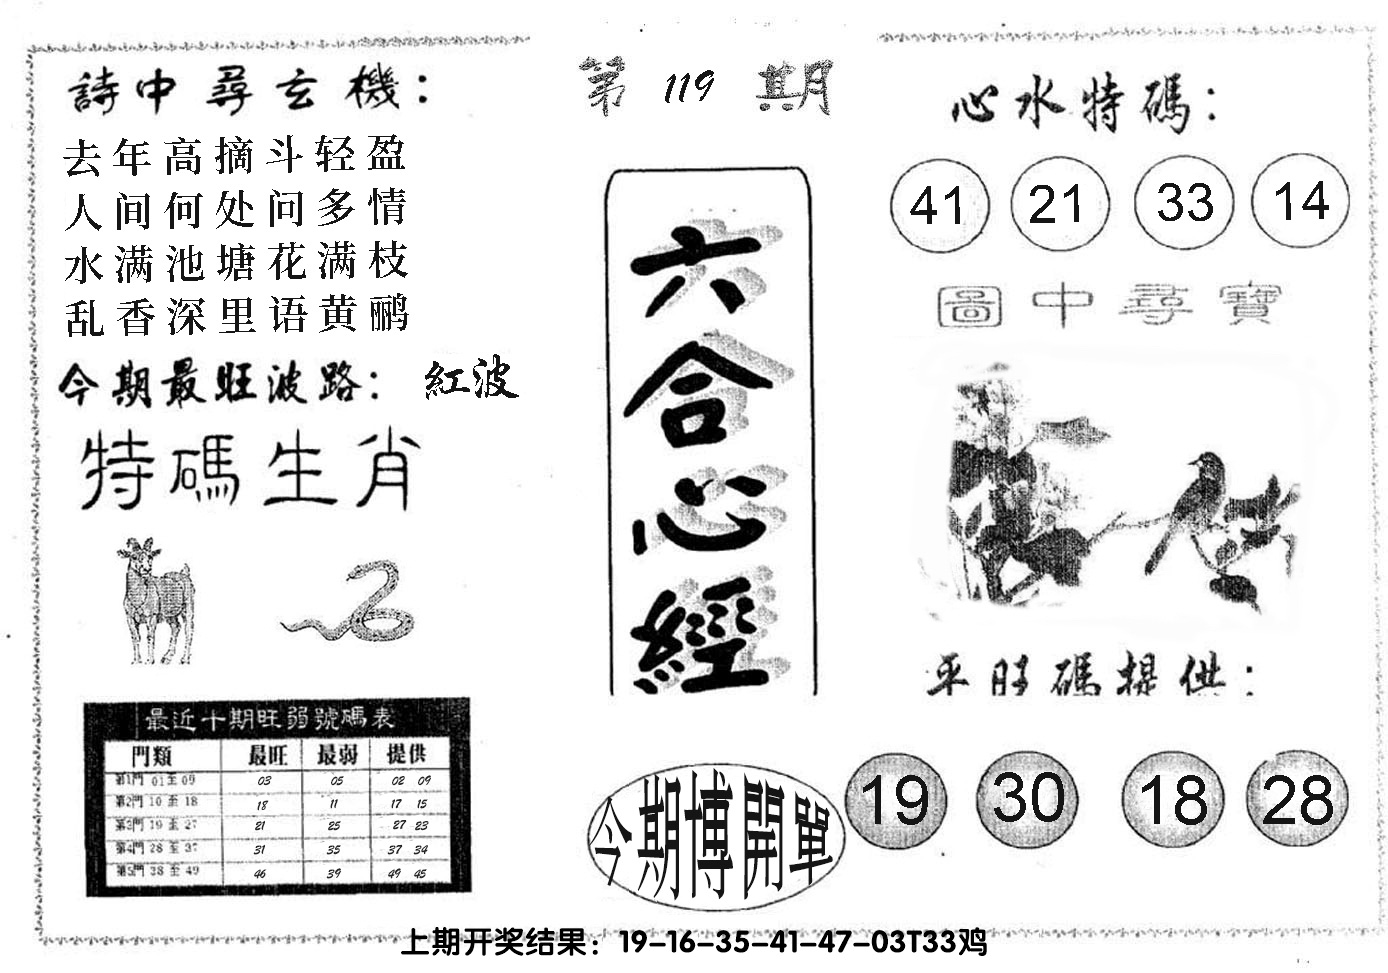 詩中尋玄機：
去年高摘斗轻盈
人间何处问多情
水满池塘花满枝
乱香深里语黄鹂
今期最旺波路： 紅波
特碼生肖
最近十期旺弱號碼表
門類 最旺 最弱 提供
第1門 01至09 03 05 02 09
第2門 10至18 18 11 17 15
第3門 19至27 21 25 27 23
第4門 28至37 31 35 37 34
第5門 38至49 46 39 49 45
第119期
六合心經
今期博開單
心水特碼：
41 21 33 14
圖中尋寶
平旺碼提供：
19 30 18 28
上期开奖结果：19-16-35-41-47-03T33鸡